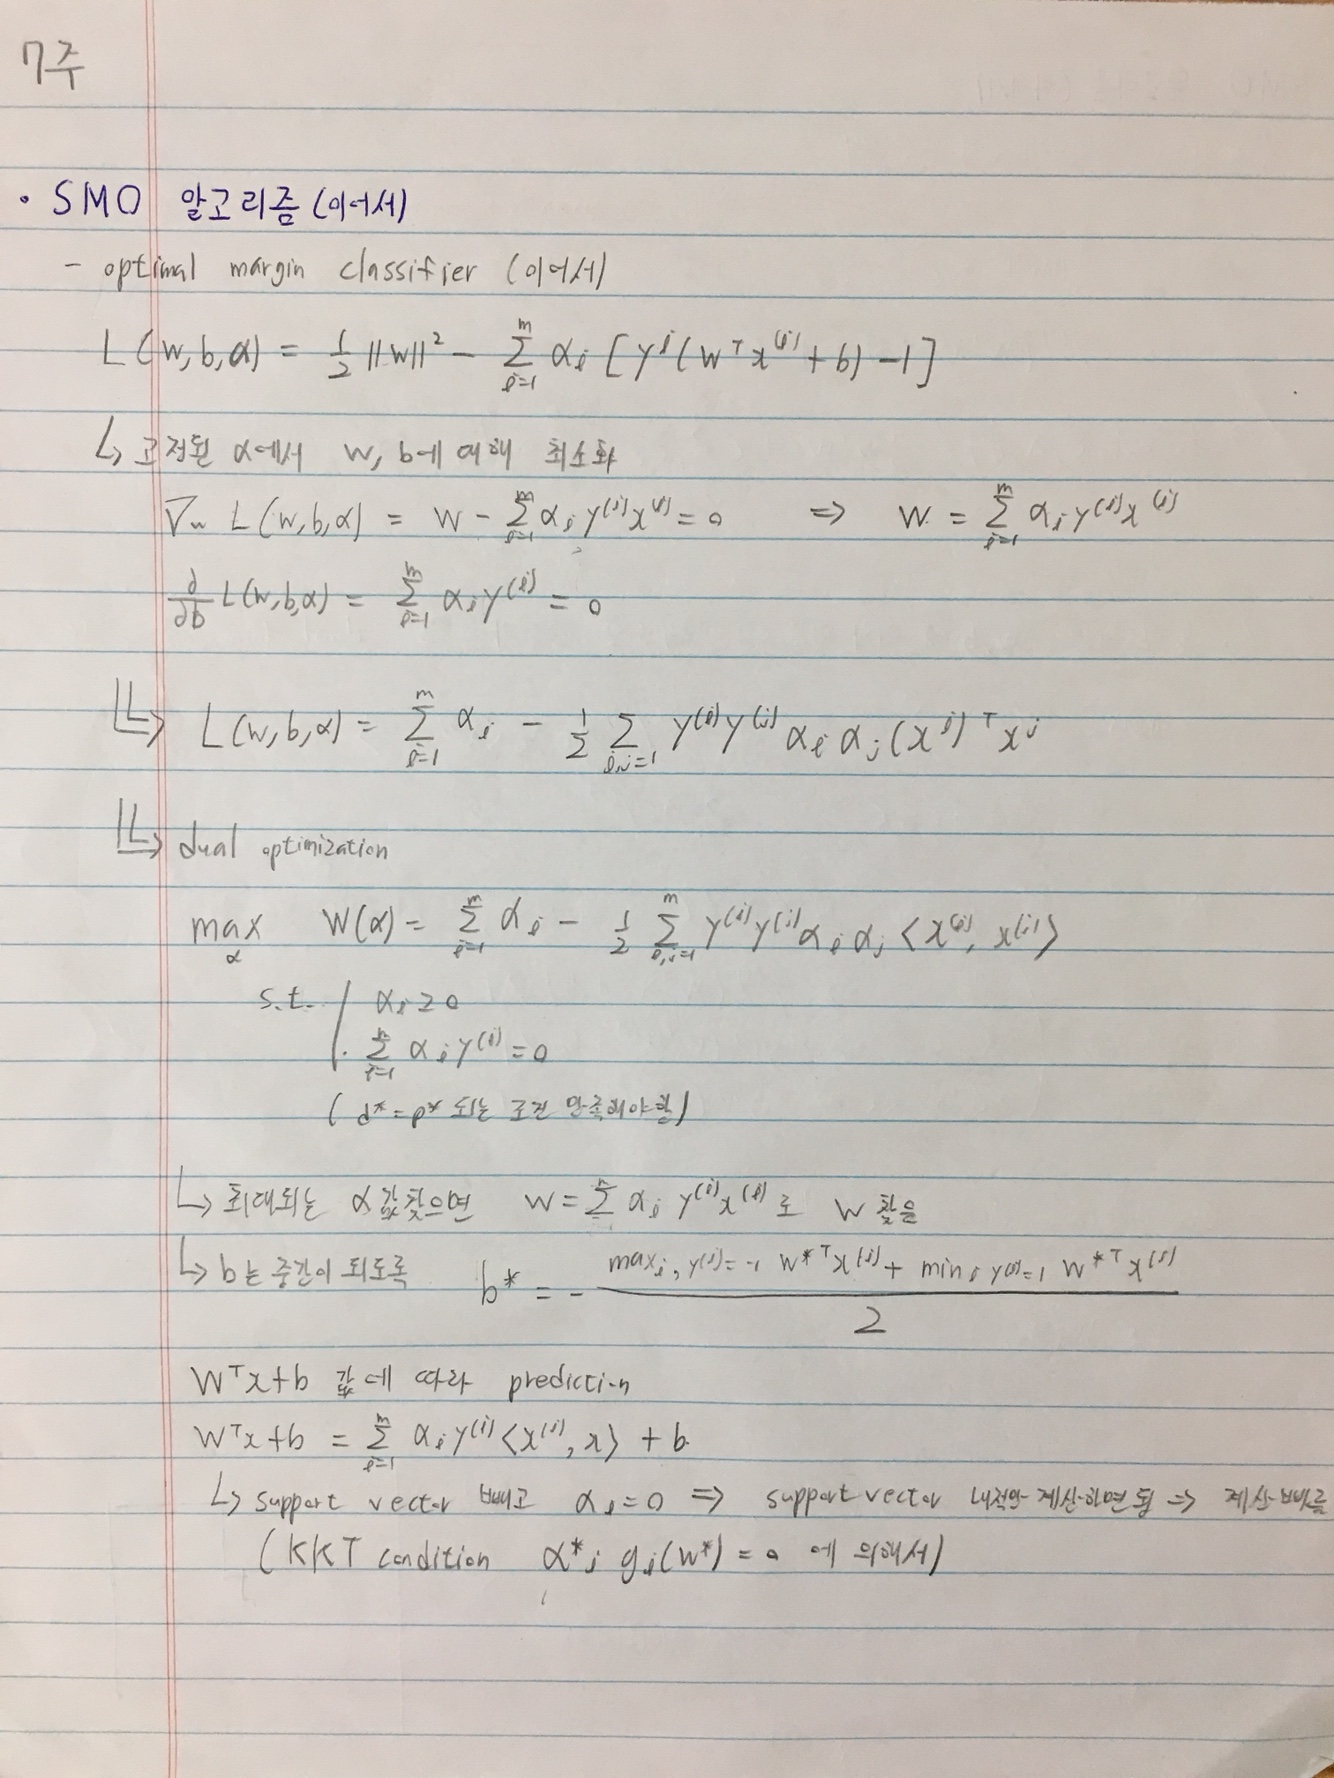 7주
· SMO 알고리즘 (이어서)
- optimal margin classifier (이어서)
L(w,b,α) = 1/2 ||w||² - Σ_{i=1}^{m} α_i [y^i (w^T x^{(i)} + b) - 1]
↳ 고정된 α에서 w, b에 대해 최소화
∇_w L(w,b,α) = w - Σ_{i=1}^{m} α_i y^{(i)} x^{(i)} = 0 ⇒ w = Σ_{i=1}^{m} α_i y^{(i)} x^{(i)}
∂/∂b L(w,b,α) = Σ_{i=1}^{m} α_i y^{(i)} = 0
↳ L(w,b,α) = Σ_{i=1}^{m} α_i - 1/2 Σ_{i,j=1} y^{(i)} y^{(j)} α_i α_j (x^i)^T x^j
↳ dual optimization
max_α W(α) = Σ_{i=1}^{m} α_i - 1/2 Σ_{i,j=1}^{m} y^{(i)} y^{(j)} α_i α_j ⟨x^{(i)}, x^{(j)}⟩
s.t. α_i ≥ 0
Σ_{i=1}^{m} α_i y^{(i)} = 0
(d* = p* 되는 조건 만족해야함)
↳ 최대되는 α값 찾으면 w = Σ α_i y^{(i)} x^{(i)}로 w 찾음
↳ b는 중간이 되도록 b* = - (max_{i, y^{(i)}=-1} w*^T x^{(i)} + min_{i, y^{(i)}=1} w*^T x^{(i)}) / 2
w^T x + b 값에 따라 prediction
w^T x + b = Σ_{i=1}^{m} α_i y^{(i)} ⟨x^{(i)}, x⟩ + b
↳ support vector 빼고 α_i = 0 ⇒ support vector 내적만 계산하면 됨 ⇒ 계산 빠름
(KKT condition α*_i g_i(w*) = 0 에 의해서)